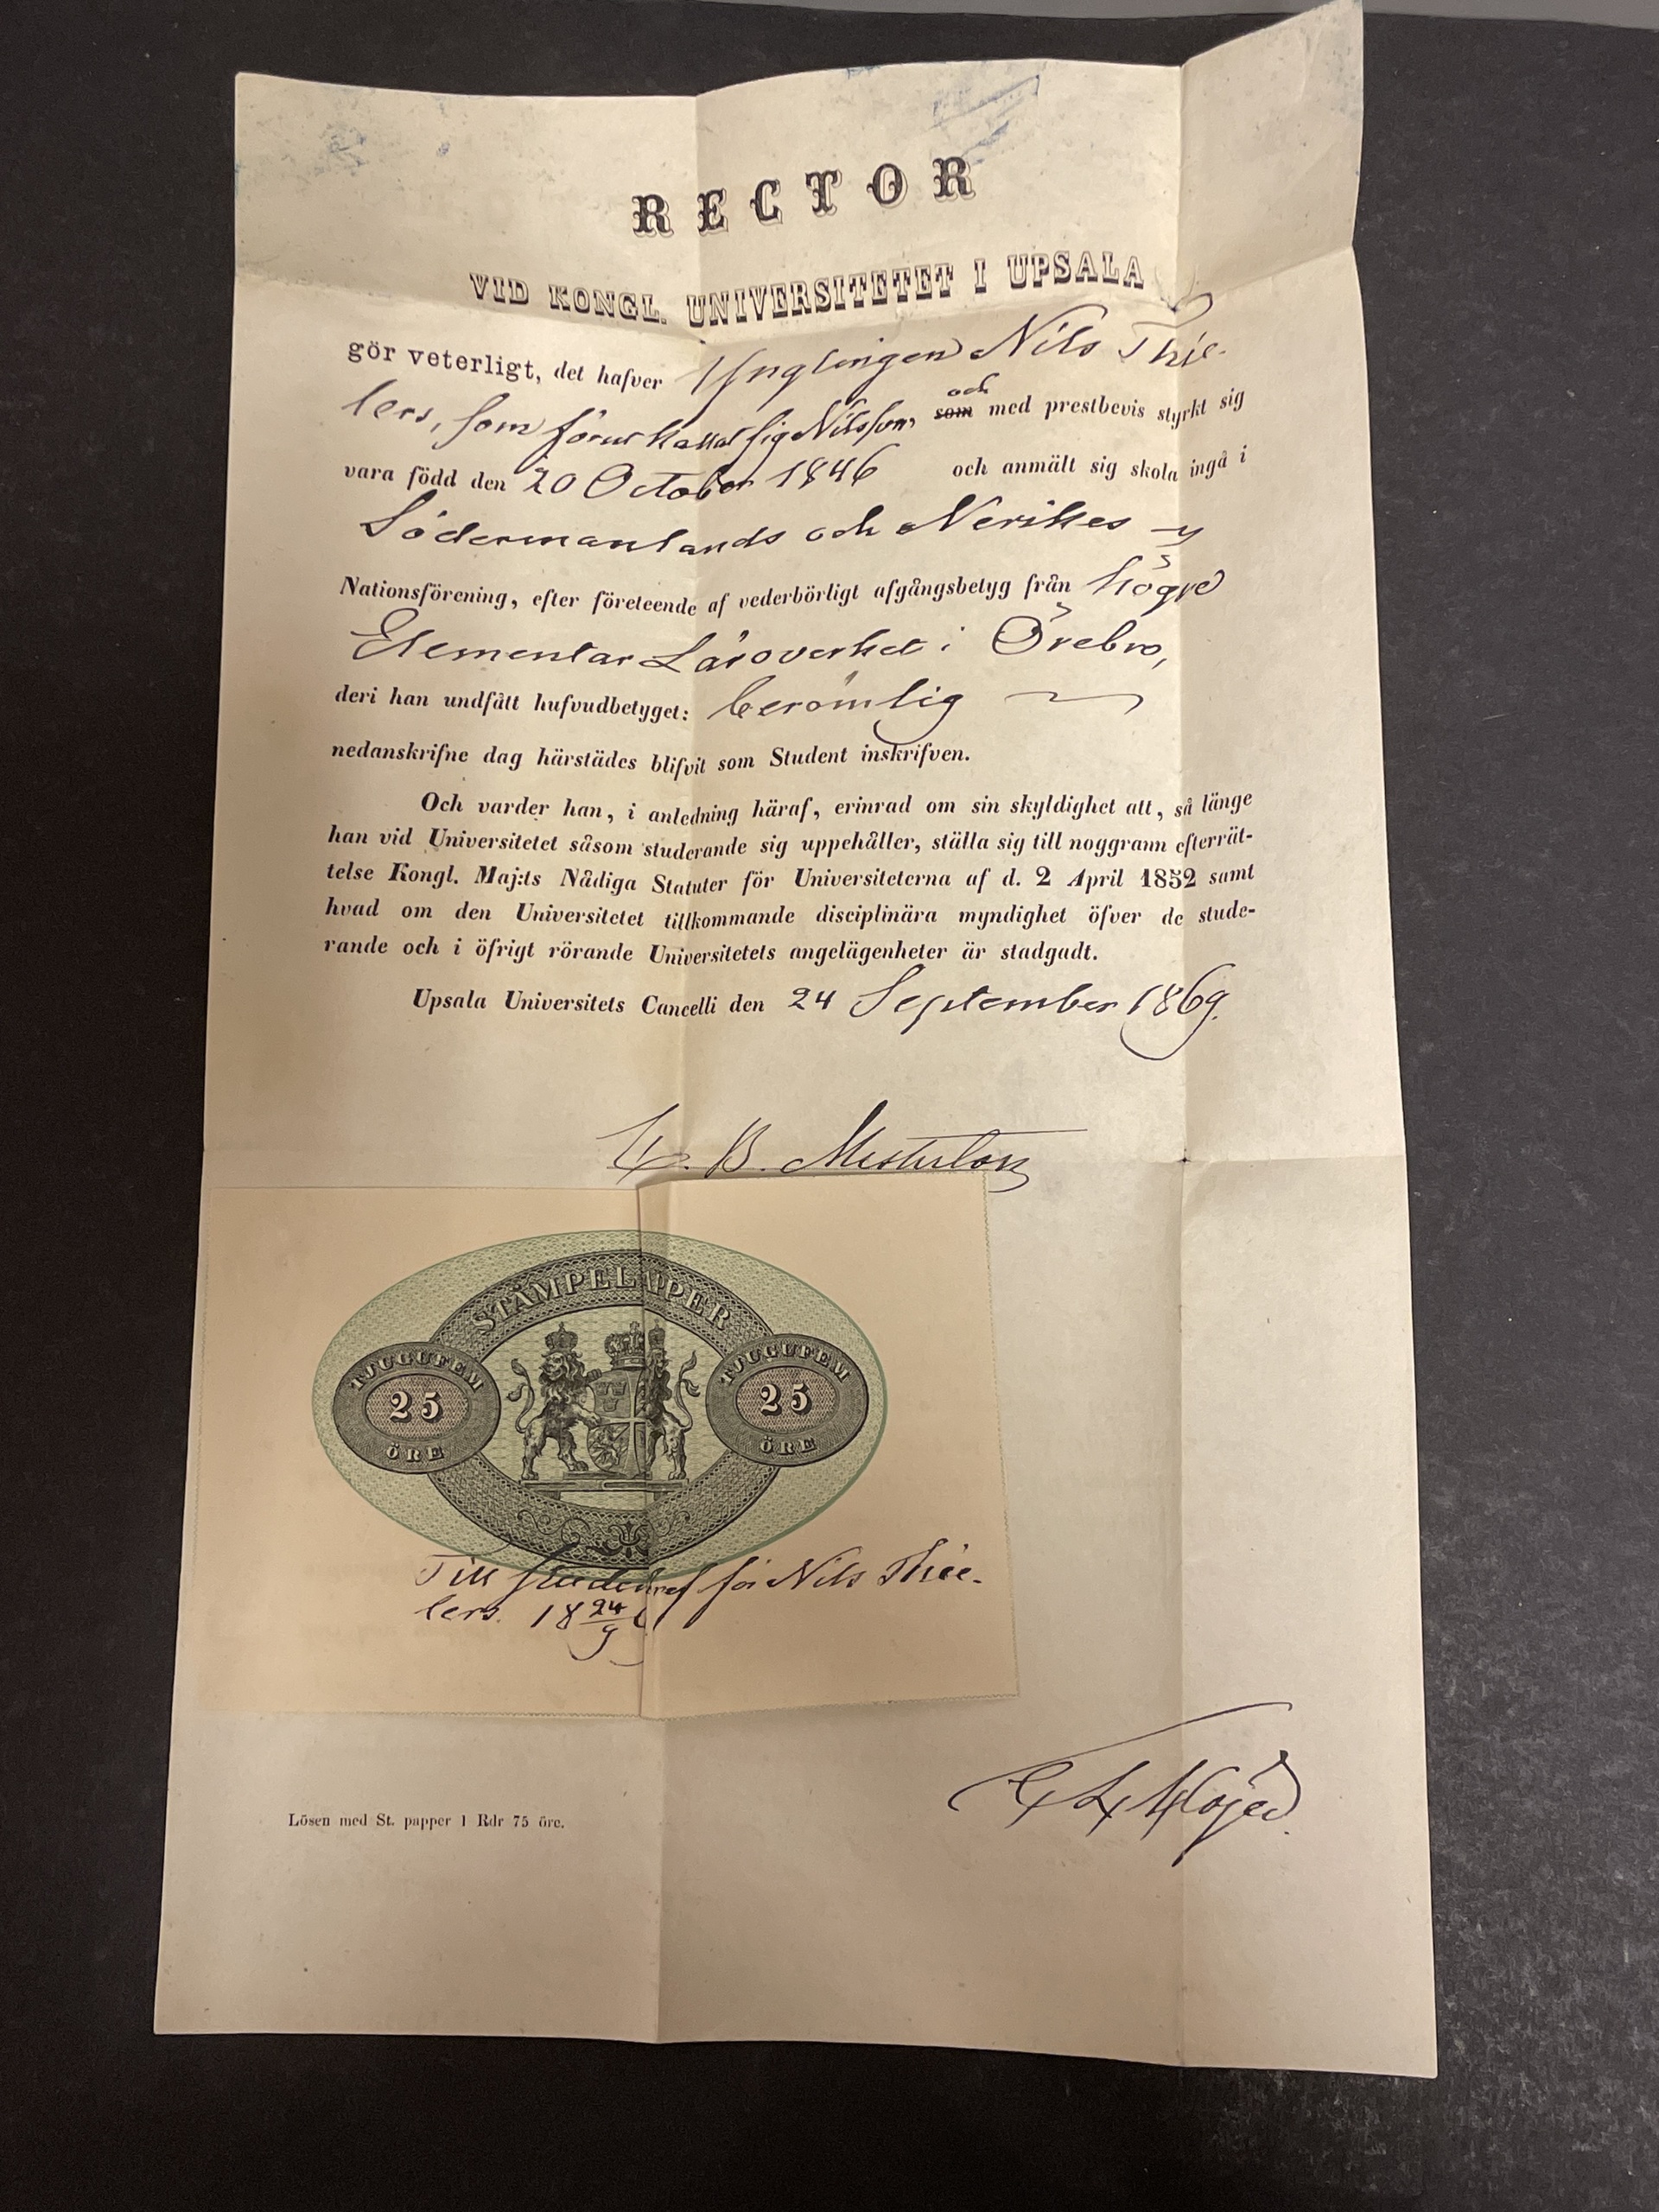 RECTOR
VID KONGL. UNIVERSITETET I UPSALA
gör veterligt, det hafver Ynglingen Nils Thie-
lers, som förut kallat sig Nilsson, och
som med prestbevis styrkt sig
vara född den 20 October 1846 och anmält sig skola ingå i
Södermanlands och Nerikes
Nationsförening, efter företeende af vederbörligt afgångsbetyg från högre
Elementar Läroverket i Örebro,
deri han undfått hufvudbetyget: berömlig
nedanskrifne dag härstädes blifvit som Student inskrifven.
Och varder han, i anledning häraf, erinrad om sin skyldighet att, så länge
han vid Universitetet såsom studerande sig uppehåller, ställa sig till noggrann efterrät-
telse Kongl. Maj:ts Nådiga Statuter för Universiteterna af d. 2 April 1852 samt
hvad om den Universitetet tillkommande disciplinära myndighet öfver de stude-
rande och i öfrigt rörande Universitetets angelägenheter är stadgadt.
Upsala Universitets Cancelli den 24 September 1869.
B.
STÄMPELPAPER
TJUGUFEM 25 ÖRE
TJUGUFEM 25 ÖRE
Till för Nils Thie-
lers. 18 24/9
Lösen med St. papper 1 Rdr 75 öre.